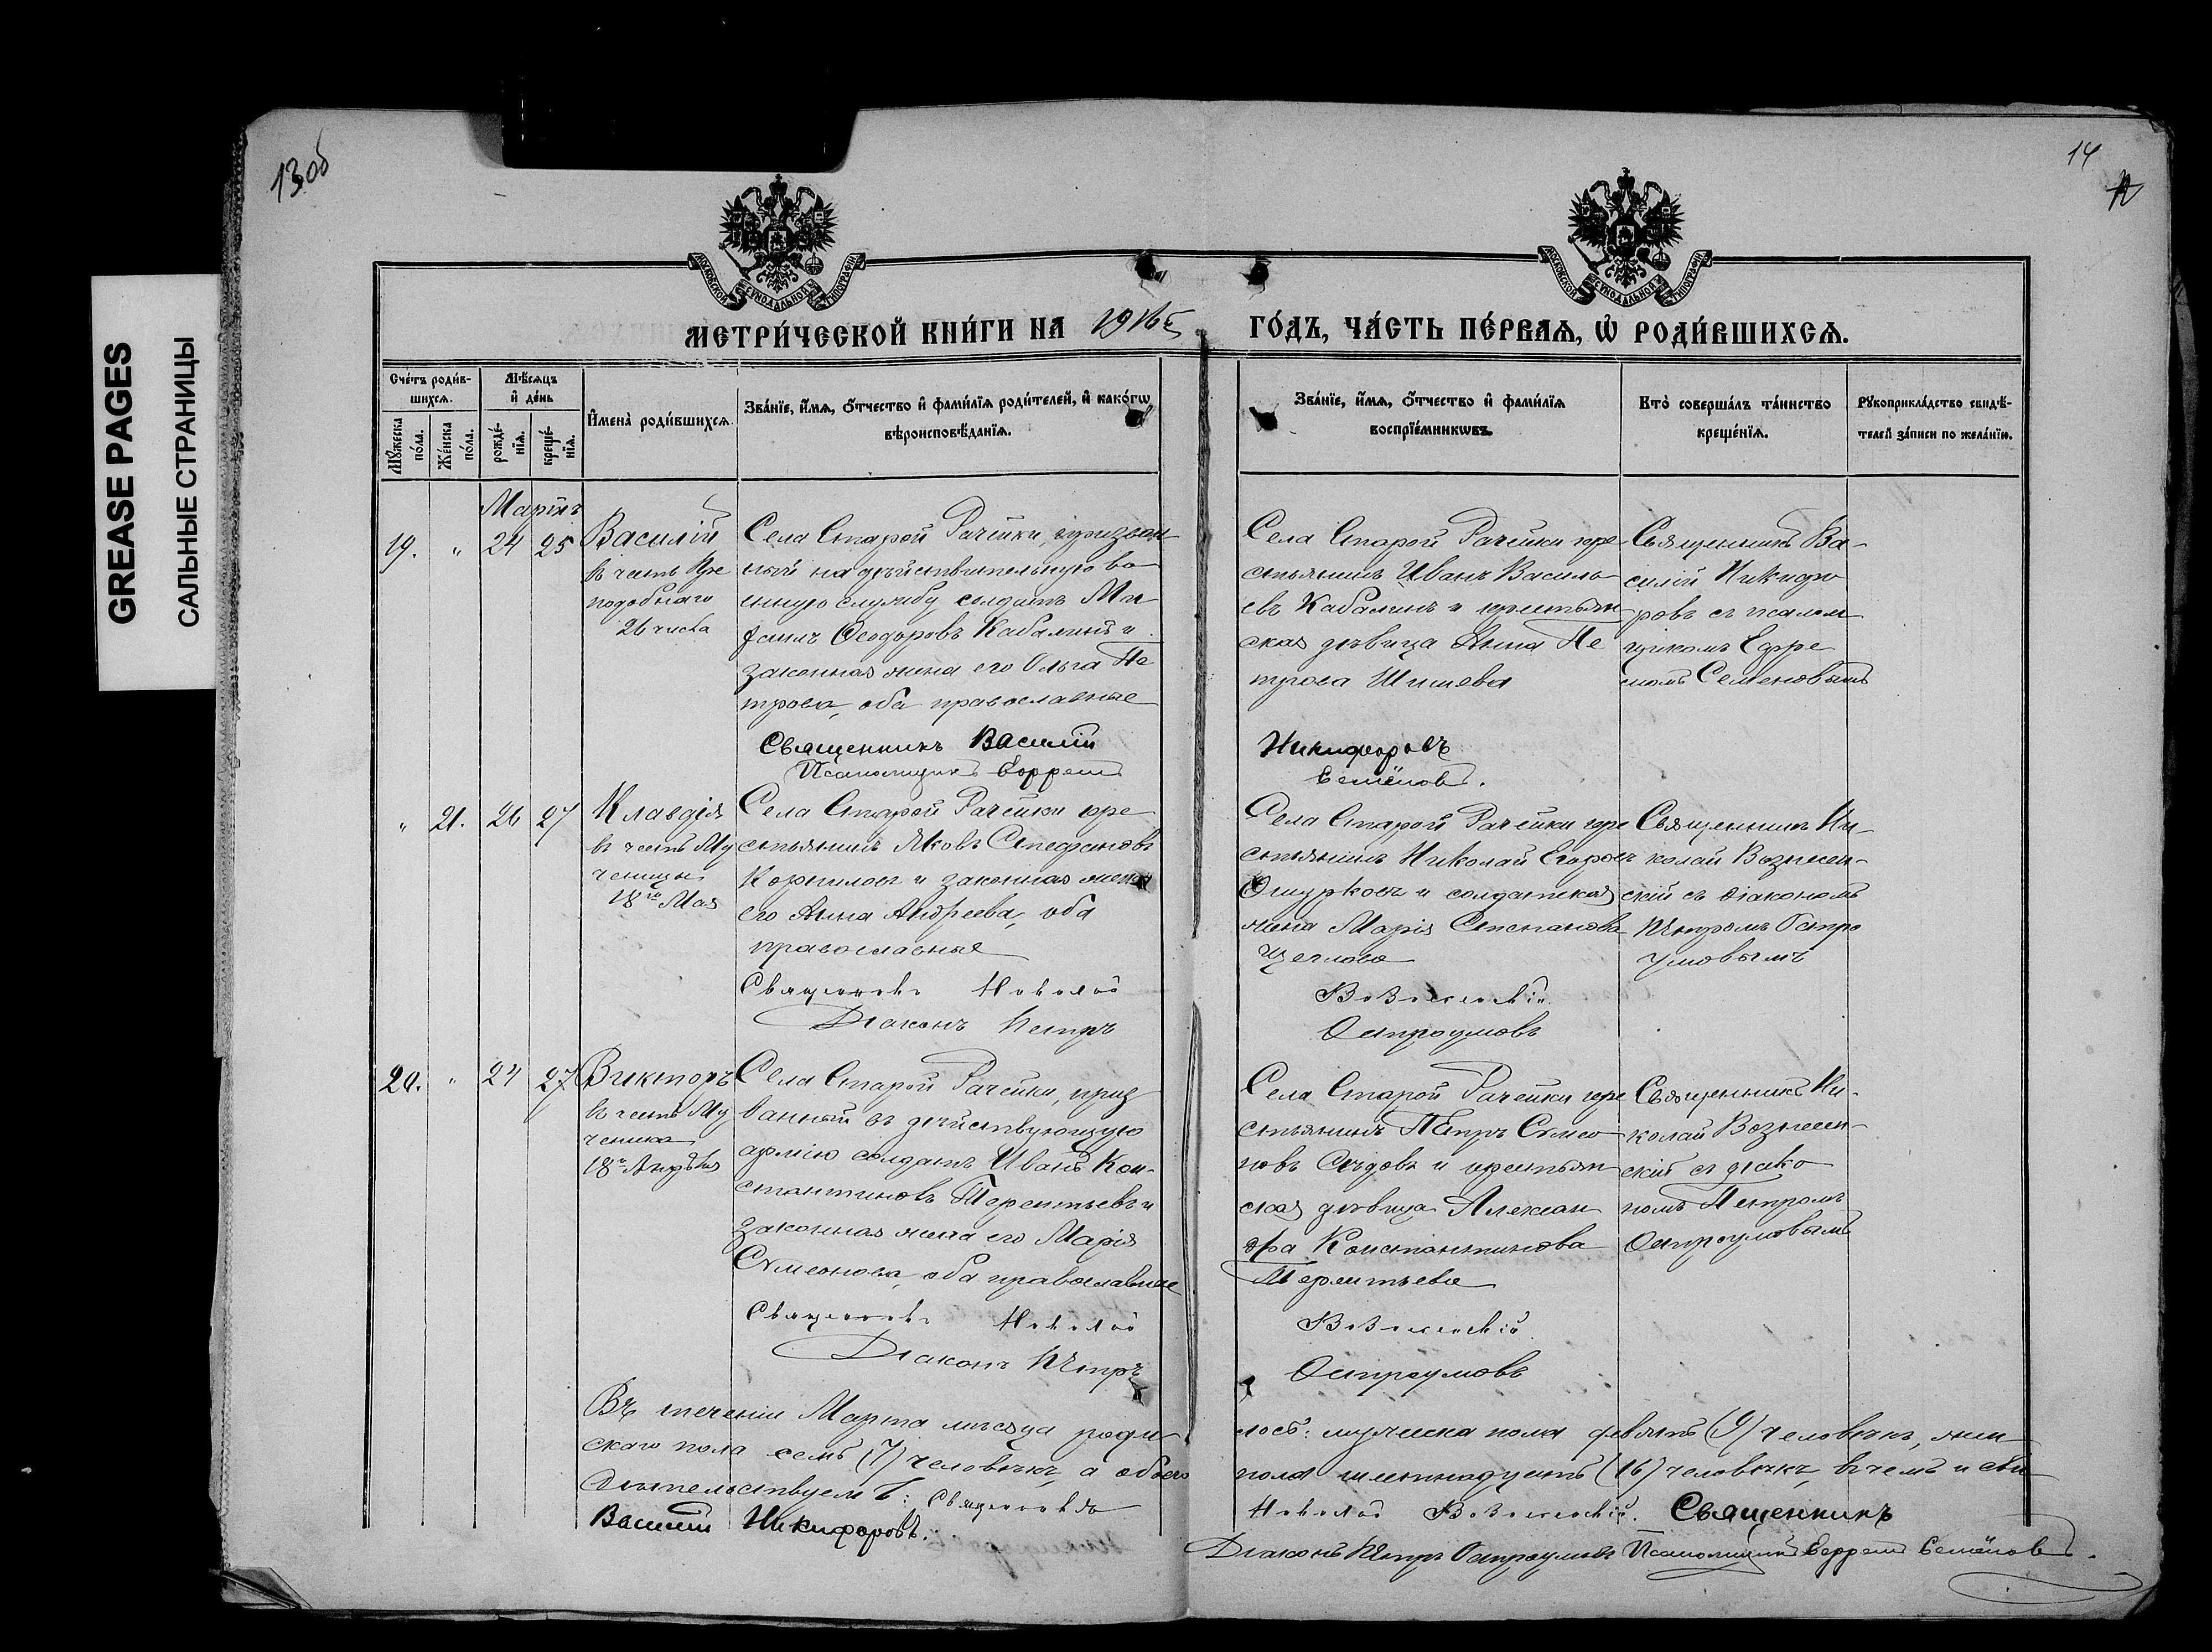 13 об
14
GREASE PAGES
САЛЬНЫЕ СТРАНИЦЫ
МОСКОВСКОЙ СѴНОДАЛЬНОЙ ТИПОГРАФІИ
МОСКОВСКОЙ СѴНОДАЛЬНОЙ ТИПОГРАФІИ
МЕТРИ́ЧЕСКОЙ КНИ́ГИ НА 1916 й
ГО́ДЪ, ЧА́СТЬ ПЕ́РВАЯ, Ѽ РОДИ́ВШИХСЯ.
Сче́тъ роди́в-
шихся.
Мѣ́сяцъ
и҆ де́нь
Мꙋ́жеска по́ла.
Же́нска по́ла.
рожде́-
нїя.
креще́-
нїя.
И҆мена̀ роди́вшихся.
Зва́нїе, и҆́мя, ѻ҆́тчество и҆ фами́лїя роди́телей, и҆ како́гѡ
вѣроисповѣ́данїя.
Зва́нїе, и҆́мя, ѻ҆́тчество и҆ фами́лїя
воспрїе́мникѡвъ.
Кто̀ соверша́лъ та́инство
креще́нїя.
Рꙋкоприкла́дство свидѣ́-
телей за́писи по жела́нїю.
Мартъ
19. " 24 25 Василій
въ честь Пре
подобнаго
26 числа
Села Старой Рачейки, призван
ный на дѣйствительную во
енную службу солдатъ Ми
хаилъ Ѳеодоровъ Кабалинъ и
законная жена его Ольга Пе
трова, оба православные
Священникъ Василій
Псаломщикъ Ефремъ
Села Старой Рачейки кре
стьянинъ Иванъ Василь
евъ Кабалинъ и крестьян
ская дѣвица Анна Пе
трова Шишева
Никифоровъ
Семёновъ.
Священникъ Ва-
силій Никифо
ровъ съ псалом
щикомъ Ефре
момъ Семеновымъ
" 21. 26 27 Клавдія
въ честь Му
ченицы
18го Мая
Села Старой Рачейки кре
стьянинъ Яковъ Стефановъ
Корниловъ и законная жена
его Анна Андреева, оба
православные
Священникъ Николай
Діаконъ Петръ
Села Старой Рачейки кре
стьянинъ Николай Егоровъ
Ошурковъ и солдатская
жена Марія Степанова
Щеглова
Вознесенскій.
Остроумовъ
Священникъ Ни-
колай Вознесен-
скій съ діакономъ
Петромъ Остро
умовымъ
20. " 27 27 Викторъ
въ честь Му
ченика
18го Апрѣля
Села Старой Рачейки, приз
ванный въ дѣйствующую
армію солдатъ Иванъ Кон-
стантиновъ Терентьевъ и
законная жена его Марія
Сѵмеонова, оба православные
Священникъ Николай
Діаконъ Петръ
Села Старой Рачейки кре
стьянинъ Петръ Сѵмео
новъ Сѣдовъ и крестьян
ская дѣвица Алексан
дра Константинова
Терентьева
Вознесенскій.
Остроумовъ
Священникъ Ни-
колай Вознесен-
скій съ діако
номъ Петромъ
Остроумовымъ
Въ теченіи Марта мѣсяца роди
лось: мужеска пола девять (9) человѣкъ, жен
скаго пола семь (7) человѣкъ, а обоего
пола шестнадцать (16) человѣкъ, въ чемъ и сви
дѣтельствуемъ: Священникъ
Николай Вознесенскій. Священникъ
Василій Никифоровъ.
Діаконъ Петръ Остроумовъ Псаломщикъ Ефремъ Семёновъ.